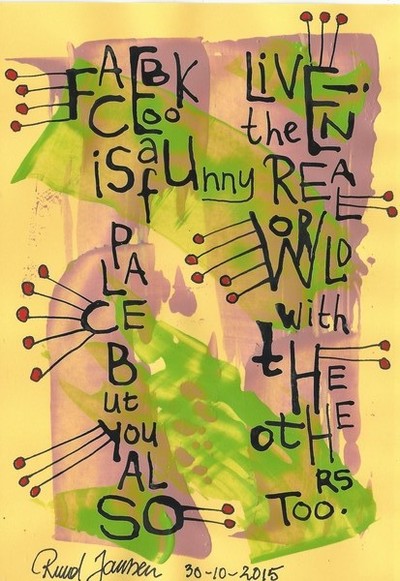 FACEBOOK
is a fUnny
PLACE
But
you
ALSO
LiVE iN
the
REAL
WORLD
with
tHE
otHERS
Too.
Ruud Janssen 30-10-2015